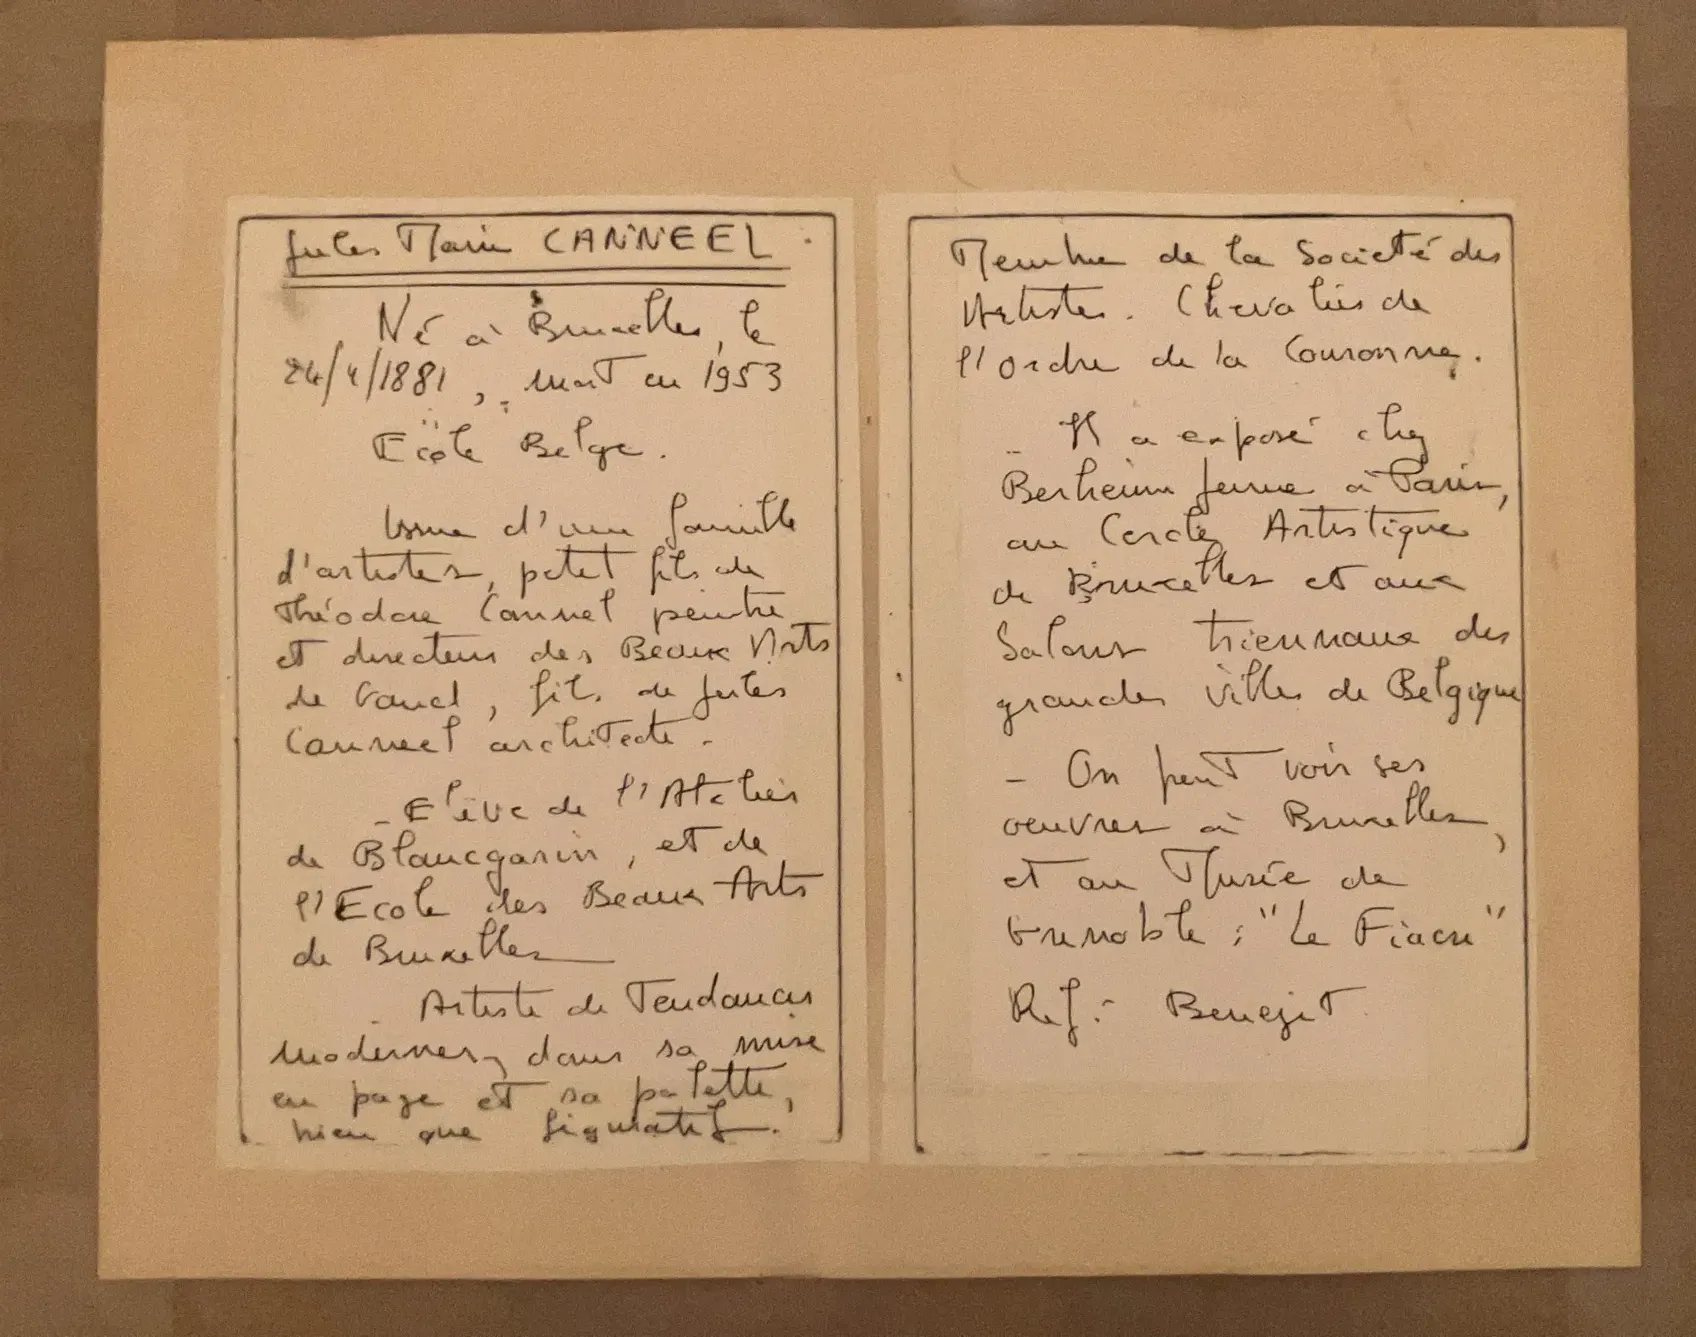 Jules Marie CANNEEL
Né à Bruxelles, le
24/4/1881, mort en 1953
Ecole Belge.
Issue d'une famille
d'artistes, petit fils de
Théodore Cannel peintre
et directeur des Beaux Arts
de Gand, fils de Jules
Canneel architecte.
- Elève de l'Atelier
de Blancgarin, et de
l'Ecole des Beaux Arts
de Bruxelles
Artiste de Tendances
modernes, dans sa mise
en page et sa palette,
bien que figuratif.
Membre de la Societé des
Artistes. Chevalier de
l'Ordre de la Couronne.
- Il a exposé chez
Berheim jeune à Paris,
au Cercle Artistique
de Bruxelles et aux
Salons triennaux des
grandes villes de Belgique
- On peut voir ses
oeuvres à Bruxelles,
et au Musée de
Grenoble : "Le Fiacre"
Ref : Benezit